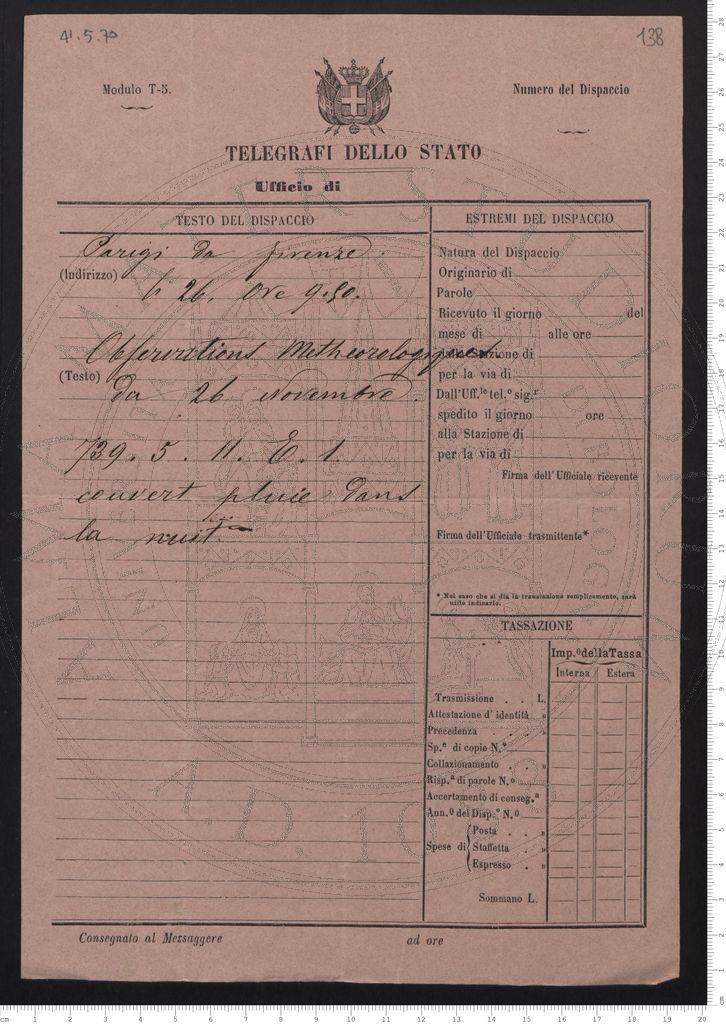 41.5.70
138
Modulo T-5.
Numero del Dispaccio
TELEGRAFI DELLO STATO
Ufficio di
TESTO DEL DISPACCIO
(Indirizzo)
Parigi da firenze.
li 26, ore 9.50.
(Testo)
Observations Metheorologiques.
da 26 Novembre.
739.5. 11. E. 1.
couvert pluie dans
la nuit.
ESTREMI DEL DISPACCIO
Natura del Dispaccio
Originario di
Parole
Ricevuto il giorno del
mese di alle ore
Stazione di
per la via di
Dall'Uff.le tel.o sig.r
spedito il giorno ore
alla Stazione di
per la via di
Firma dell'Ufficiale ricevente
Firma dell'Ufficiale trasmittente*
* Nel caso che si dia la translazione semplicemente, sarà
utile indicarlo.
TASSAZIONE
Imp.o della Tassa
Interna Estera
Trasmissione . . L.
Attestazione d'identità »
Precedenza . . . »
Sp.e di copie N.o
Collazionamento . »
Risp.a di parole N.o
Accertamento di conseg.a
Ann.o del Disp.o N.o
Spese di
Posta . . »
Staffetta . »
Espresso . »
Sommano L.
Consegnato al Messaggere
ad ore